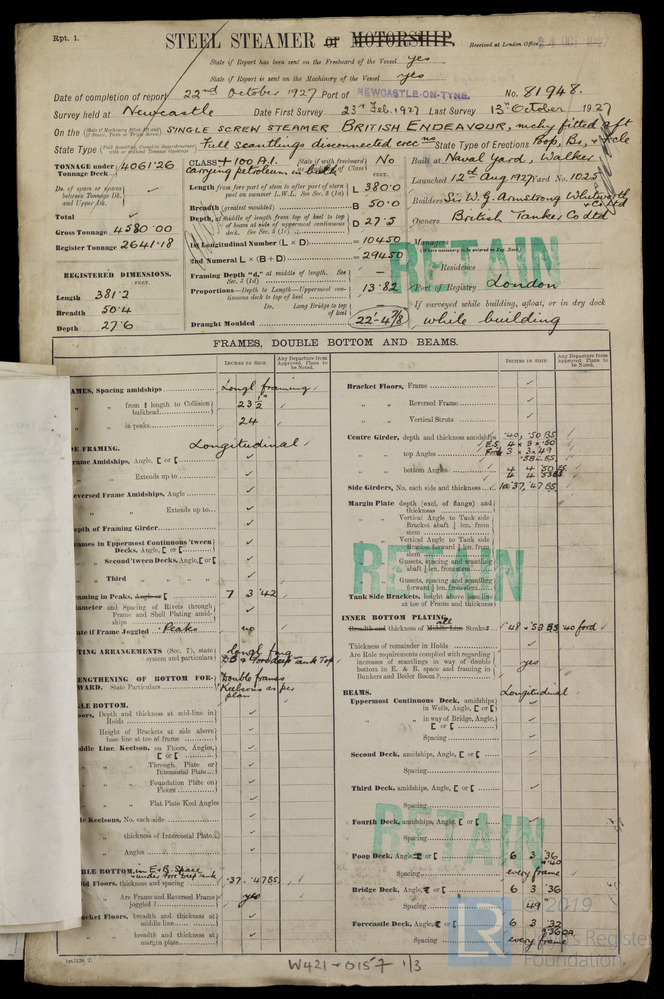 Rpt. 1.
STEEL STEAMER or MOTORSHIP.
Received at London Office 24 OCT 1927
State if Report has been sent on the Freeboard of the Vessel yes
State if Report is sent on the Machinery of the Vessel yes
Date of completion of report 22nd October 1927 Port of NEWCASTLE-ON-TYNE. No. 81948.
Survey held at Newcastle Date First Survey 23rd Feb. 1927 Last Survey 13th October 1927
On the SINGLE SCREW STEAMER BRITISH ENDEAVOUR, mchy fitted aft
State Type Full scantlings disconnected erecns State Type of Erections Poop, Br, + Fcle
TONNAGE under Tonnage Deck 4061.26
Do. of space or spaces between Tonnage Dk. and Upper Dk.
Total
Gross Tonnage 4580.00
Register Tonnage 2641.18
REGISTERED DIMENSIONS.
FEET.
Length 381.2
Breadth 50.4
Depth 27.6
CLASS +100 A.1. State if with freeboard of Class No
Carrying petroleum in bulk
FEET.
Length from fore part of stem to after part of stern post on summer L.W.L. See Sec. 3 (1a) L 380.0
Breadth (greatest moulded) B 50.0
Depth, at middle of length from top of keel to top of beam at side of uppermost continuous deck. See Sec. 3 (1c) D 27.5
1st Longitudinal Number (L × D) = 10450
2nd Numeral L × (B + D) = 29450
Framing Depth "d," at middle of length. See Sec. 3 (1d)
Proportions—Depth to Length—Uppermost continuous deck to top of keel 13.82
Do. Long Bridge to top of keel
Draught Moulded 22'-4 7/8"
Built at Naval Yard, Walker
Launched 12th Aug 1927 Yard No. 1025
Builders Sir W. G. Armstrong Whitworth + Co Ltd
Owners British Tanker Co Ltd
Managers
(Where necessary to be entered on Reg. Book.)
Residence
Port of Registry London
If surveyed while building, afloat, or in dry dock
while building
RETAIN
FRAMES, DOUBLE BOTTOM AND BEAMS.
INCHES IN SHIP. Any Departure from Approved Plans to be Noted.
INCHES IN SHIP. Any Departure from Approved Plans to be Noted.
AMES, Spacing amidships Longl framing
" " from length to Collision bulkhead 23 1/2"
" " in peaks 24
DE FRAMING. Longitudinal
rame Amidships, Angle, [ or [
" " Extends up to
eversed Frame Amidships, Angle
" " Extends up to
epth of Framing Girder
rames in Uppermost Continuous 'tween Decks, Angle, [ or [
" " Second 'tween Decks, Angle, [ or [
" " Third " "
raming in Peaks, Angle or [ 7 3 .42
iameter and Spacing of Rivets through Frame and Shell Plating amidships
ate if Frame Joggled Peaks no
TING ARRANGEMENTS (Sec. 7), state system and particulars Longl fmg
D.B. & Fore deep tank Top
ENGTHENING OF BOTTOM FORWARD. State Particulars Double frames
Keelsons as per plan
LE BOTTOM.
oors, Depth and thickness at mid-line in Holds
Height of Brackets at side above base line at toe of frame
ddle Line Keelson, on Floors, Angles, [ or [
" " Through Plate or Intercostal Plate
" " Foundation Plate on Floors
" " Flat Plate Keel Angles
e Keelsons, No. each side
" " thickness of Intercostal Plate
" " Angles
BLE BOTTOM. in E & B Space & under Fore deep tank
id Floors, thickness and spacing .37 .47 BS.
Are Frame and Reversed Frame joggled? yes
acket Floors, breadth and thickness at middle line
" " breadth and thickness at margin plate
Bracket Floors, Frame
" " Reversed Frame
" " Vertical Struts
Centre Girder, depth and thickness amidships .40, .50 BS
" " top Angles E.S. 4 × 3 × .50
Ford 3 × 3 × .49
.58 BS.
" " bottom Angles 4 4 .50 BS
4 4 .53 BS
Side Girders, No. each side and thickness 1@ .37, .47 BS
Margin Plate depth (excl. of flange) and thickness
" " Vertical Angle to Tank side Bracket abaft ¼ len. from stem
" " Vertical Angle to Tank side Bracket forward ¼ len. from stem
" " Gussets, spacing and scantling abaft ¼ len. from stem
" " Gussets, spacing and scantling forward ¼ len. from stem
Tank Side Brackets, height above base line at toe of Frame and thickness
RETAIN
INNER BOTTOM PLATING.
Breadth and thickness of Middle Line Strakes all .48 .53 BS .40 ford
Thickness of remainder in Holds
Are Rule requirements complied with regarding increases of scantlings in way of double bottom in E. & B. space and framing in Bunkers and Boiler Room? yes
BEAMS. Longitudinal
Uppermost Continuous Deck, amidships in Wells, Angle, [ or [
" " in way of Bridge, Angle, [ or [
Spacing
Second Deck, amidships, Angle, [ or [
Spacing
Third Deck, amidships, Angle, [ or [
Spacing
Fourth Deck, amidships, Angle, [ or [
Spacing
RETAIN
Poop Deck, Angle, [ or [ 6 3 .36
.40
Spacing every frame
Bridge Deck, Angle, [ or [ 6 3 .36
Spacing 49
Forecastle Deck, Angle, [ or [ 6 3 .32
Spacing every frame
W421-0157 1/3
LR © 2019
Lloyd's Register
Foundation